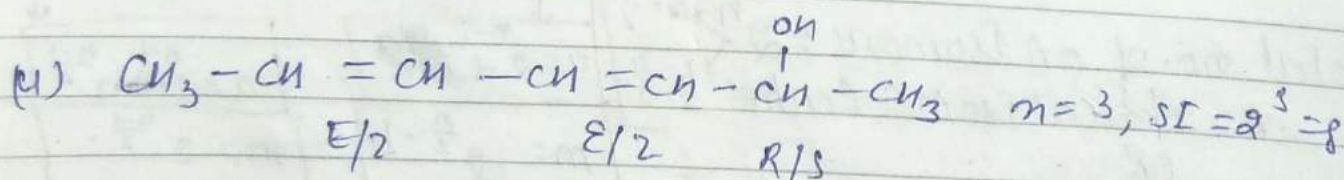 OH
(4) CH3 - CH = CH - CH = CH - CH - CH3 n = 3, SI = 2^3 = 8
E/Z E/Z R/S